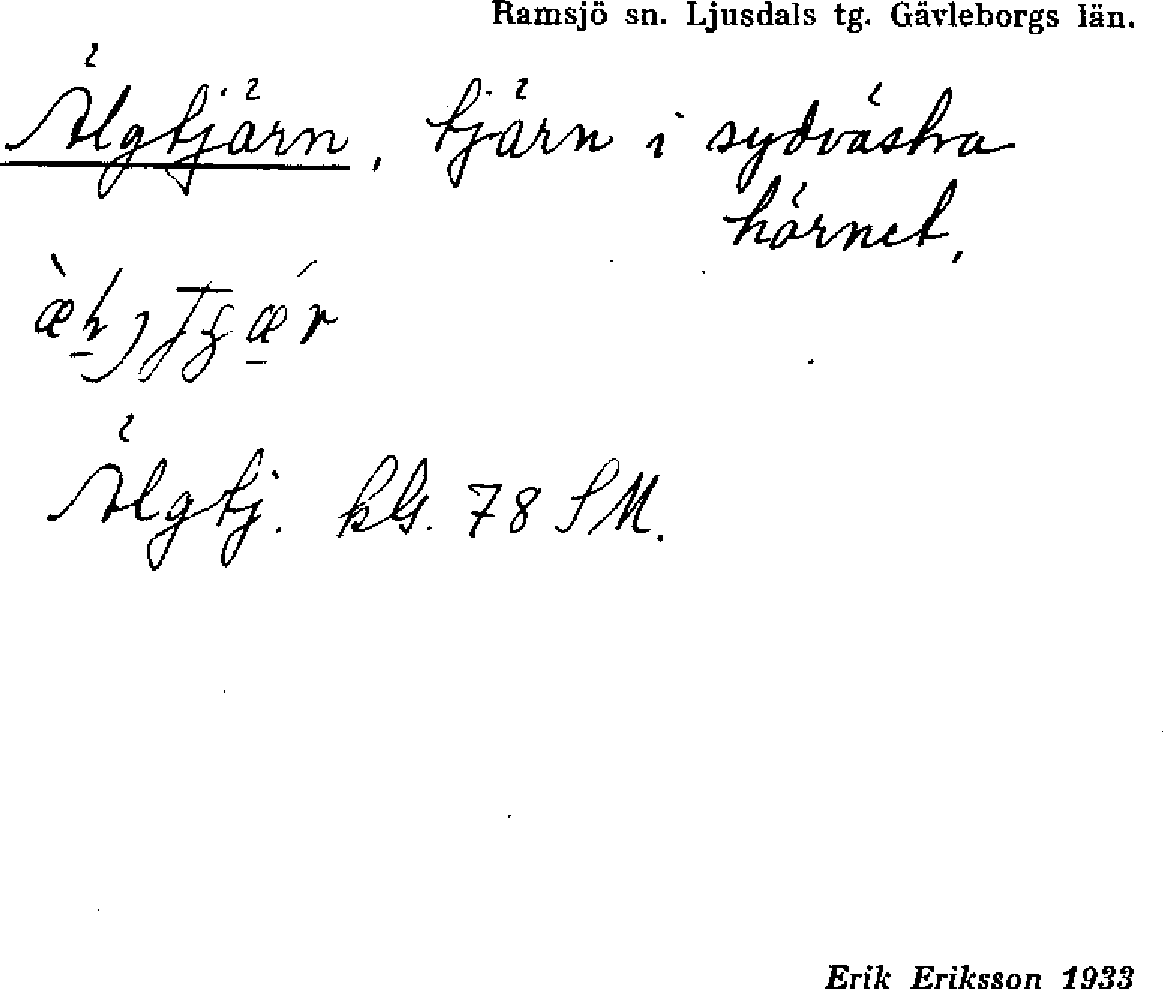 Ramsjö sn. Ljusdals tg. Gävleborgs län.
Älgtjärn, tjärn i sydvästra
hörnet.
Älgtj. kG. 78 SM.
Erik Eriksson 1933